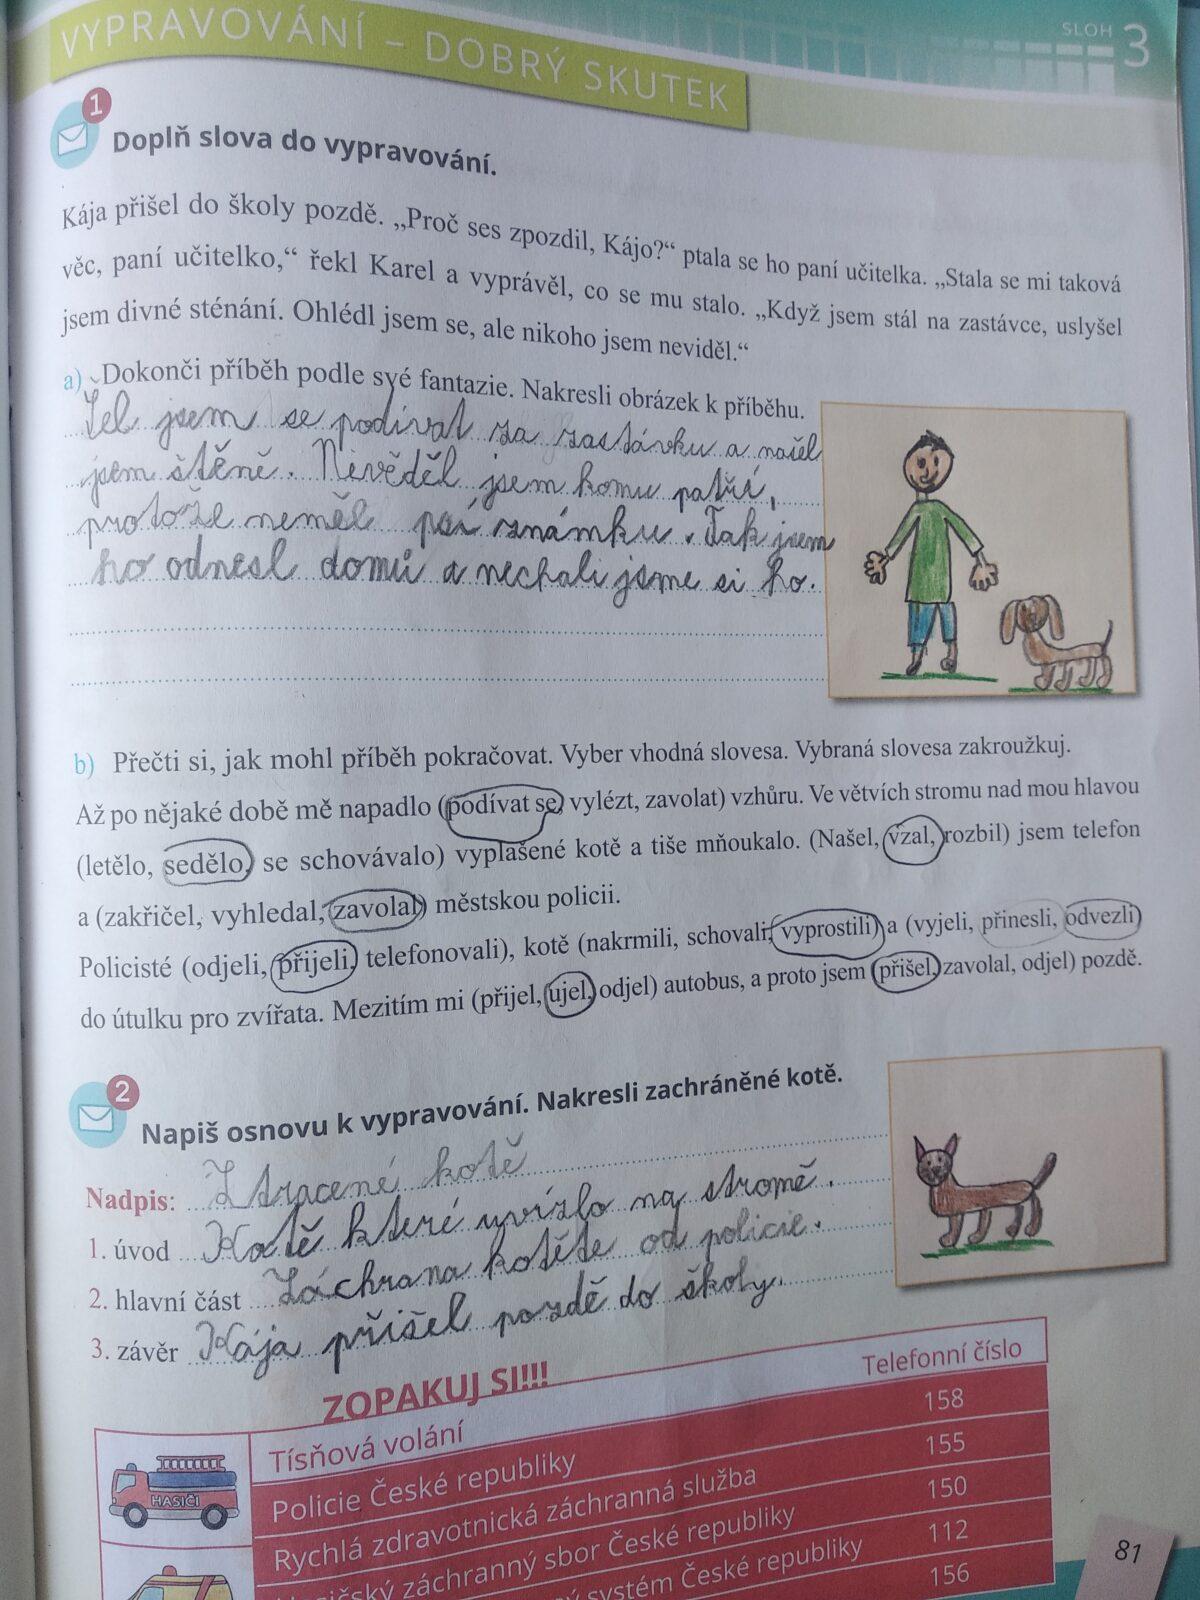 VYPRAVOVÁNÍ – DOBRÝ SKUTEK
SLOH 3
1
Doplň slova do vypravování.
Kája přišel do školy pozdě. „Proč ses zpozdil, Kájo?“ ptala se ho paní učitelka. „Stala se mi taková
věc, paní učitelko,“ řekl Karel a vyprávěl, co se mu stalo. „Když jsem stál na zastávce, uslyšel
jsem divné sténání. Ohlédl jsem se, ale nikoho jsem neviděl.“
a) Dokonči příběh podle své fantazie. Nakresli obrázek k příběhu.
Šel jsem se podívat za zastávku a našel
jsem štěně. Nevěděl jsem komu patří,
protože neměl psí známku. Tak jsem
ho odnesl domů a nechali jsme si ho.
b) Přečti si, jak mohl příběh pokračovat. Vyber vhodná slovesa. Vybraná slovesa zakroužkuj.
Až po nějaké době mě napadlo (podívat se, vylézt, zavolat) vzhůru. Ve větvích stromu nad mou hlavou
(letělo, sedělo, se schovávalo) vyplašené kotě a tiše mňoukalo. (Našel, vzal, rozbil) jsem telefon
a (zakřičel, vyhledal, zavolal) městskou policii.
Policisté (odjeli, přijeli, telefonovali), kotě (nakrmili, schovali, vyprostili) a (vyjeli, přinesli, odvezli)
do útulku pro zvířata. Mezitím mi (přijel, ujel, odjel) autobus, a proto jsem (přišel, zavolal, odjel) pozdě.
2
Napiš osnovu k vypravování. Nakresli zachráněné kotě.
Nadpis: Ztracené kotě
1. úvod Kotě které uvízlo na stromě.
2. hlavní část Záchrana kotěte od policie.
3. závěr Kája přišel pozdě do školy.
ZOPAKUJ SI!!!
Tísňová volání Telefonní číslo
Policie České republiky 158
Rychlá zdravotnická záchranná služba 155
Hasičský záchranný sbor České republiky 150
systém České republiky 112
156
HASIČI
81